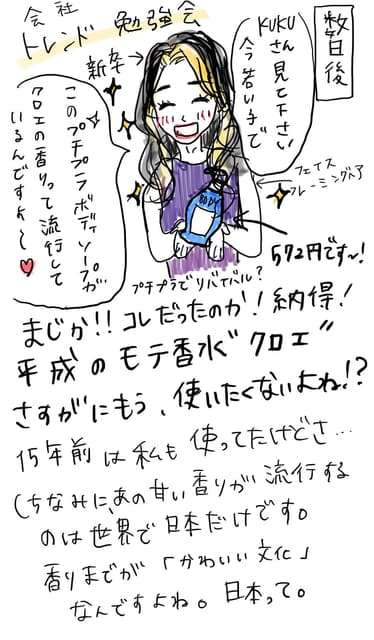 会社
トレンド勉強会
数日後
KUKU
さん見て下さい
今若い手で
新卒→
このプチプラボディソープが
クロエの香りって流行して
いるんですよ〜♥
フェイス
フレーミングヘア
BODY
572円です〜!
プチプラでリバイバル?
まじか!!コレだったのか!納得!
平成のモテ香水"クロエ"
さすがにもう、使いたくないよね!?
15年前は私も使ってたけどさ…
(ちなみに、あの甘い香りが流行する
のは世界で日本だけです。
香りまでが「かわいい文化」
なんですよね。日本って。